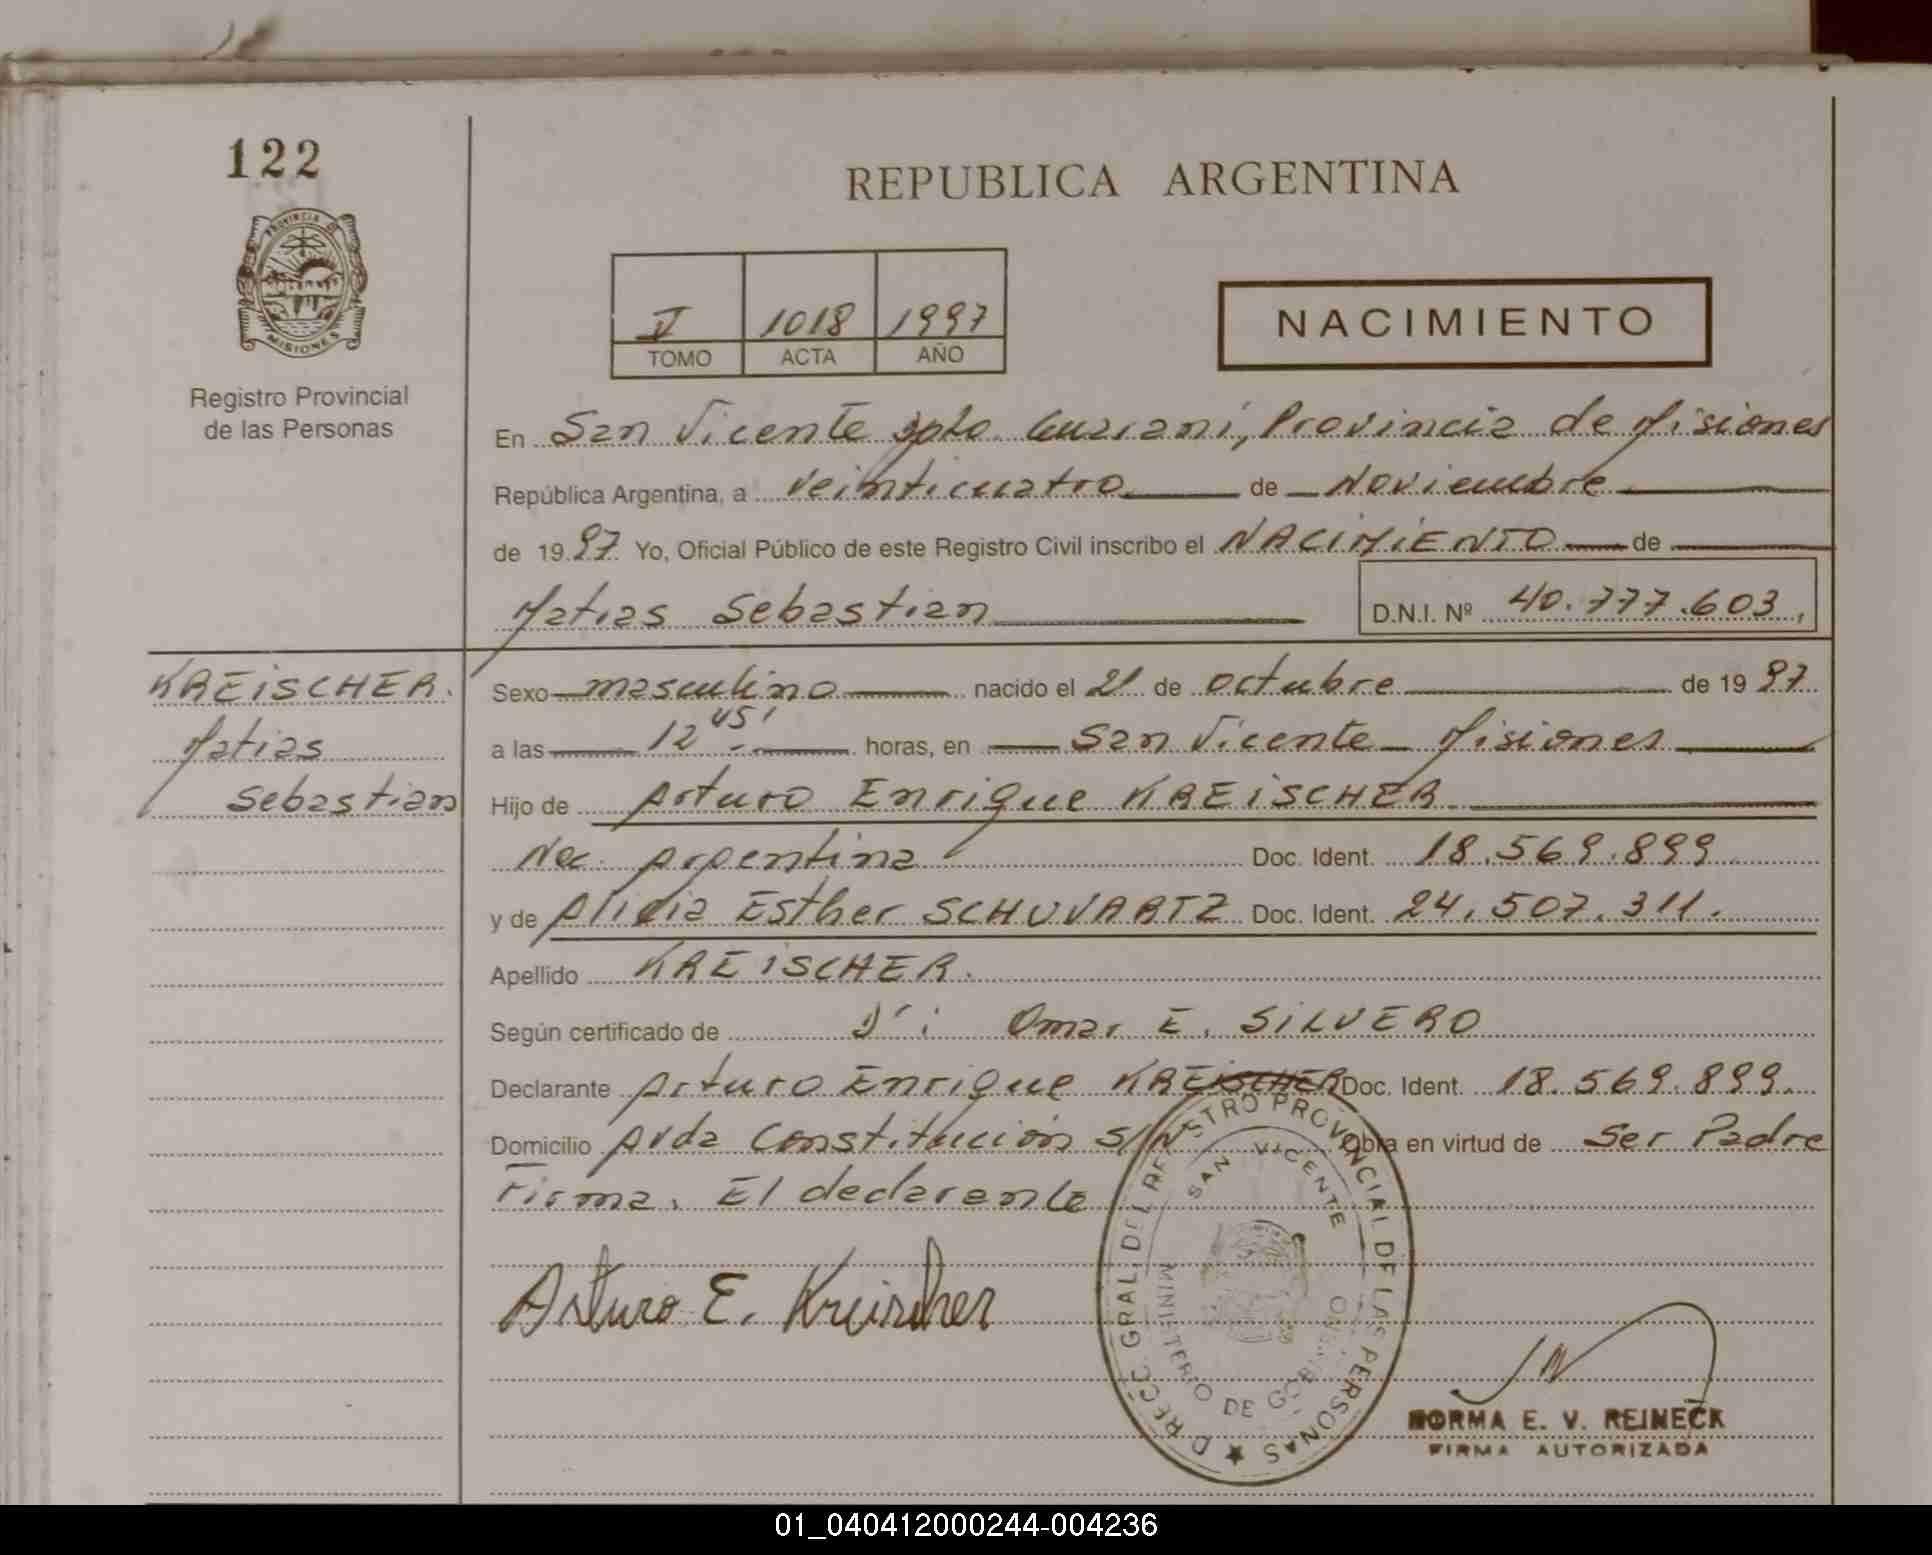 122
REPUBLICA ARGENTINA
PROVINCIA DE
MISIONES
Registro Provincial
de las Personas
V 1018 1997
TOMO ACTA AÑO
NACIMIENTO
En San Vicente Dpto. Guaraní, Provincia de Misiones
República Argentina, a veinticuatro de Noviembre
de 1997 Yo, Oficial Público de este Registro Civil inscribo el NACIMIENTO de
Matias Sebastian D.N.I. Nº 40.777.603.
KREISCHER.
Matias
Sebastian
Sexo masculino nacido el 21 de octubre de 1997
a las 12 45' horas, en San Vicente Misiones
Hijo de Arturo Enrique KREISCHER
Nac. Argentina Doc. Ident. 18.569.899
y de Alicia Esther SCHUVARTZ Doc. Ident. 24.507.311.
Apellido KREISCHER.
Según certificado de Omar E. SILVERO
Declarante Arturo Enrique KREISCHER Doc. Ident. 18.569.899.
Domicilio Avda Constitución S/N Obra en virtud de Ser Padre
Firma. El declarante
Arturo E. Kreischer
DIRECC. GRAL. DEL REGISTRO PROVINCIAL DE LAS PERSONAS
SAN VICENTE
MINISTERIO DE GOBIERNO
NORMA E. V. REINECK
FIRMA AUTORIZADA
01_040412000244-004236